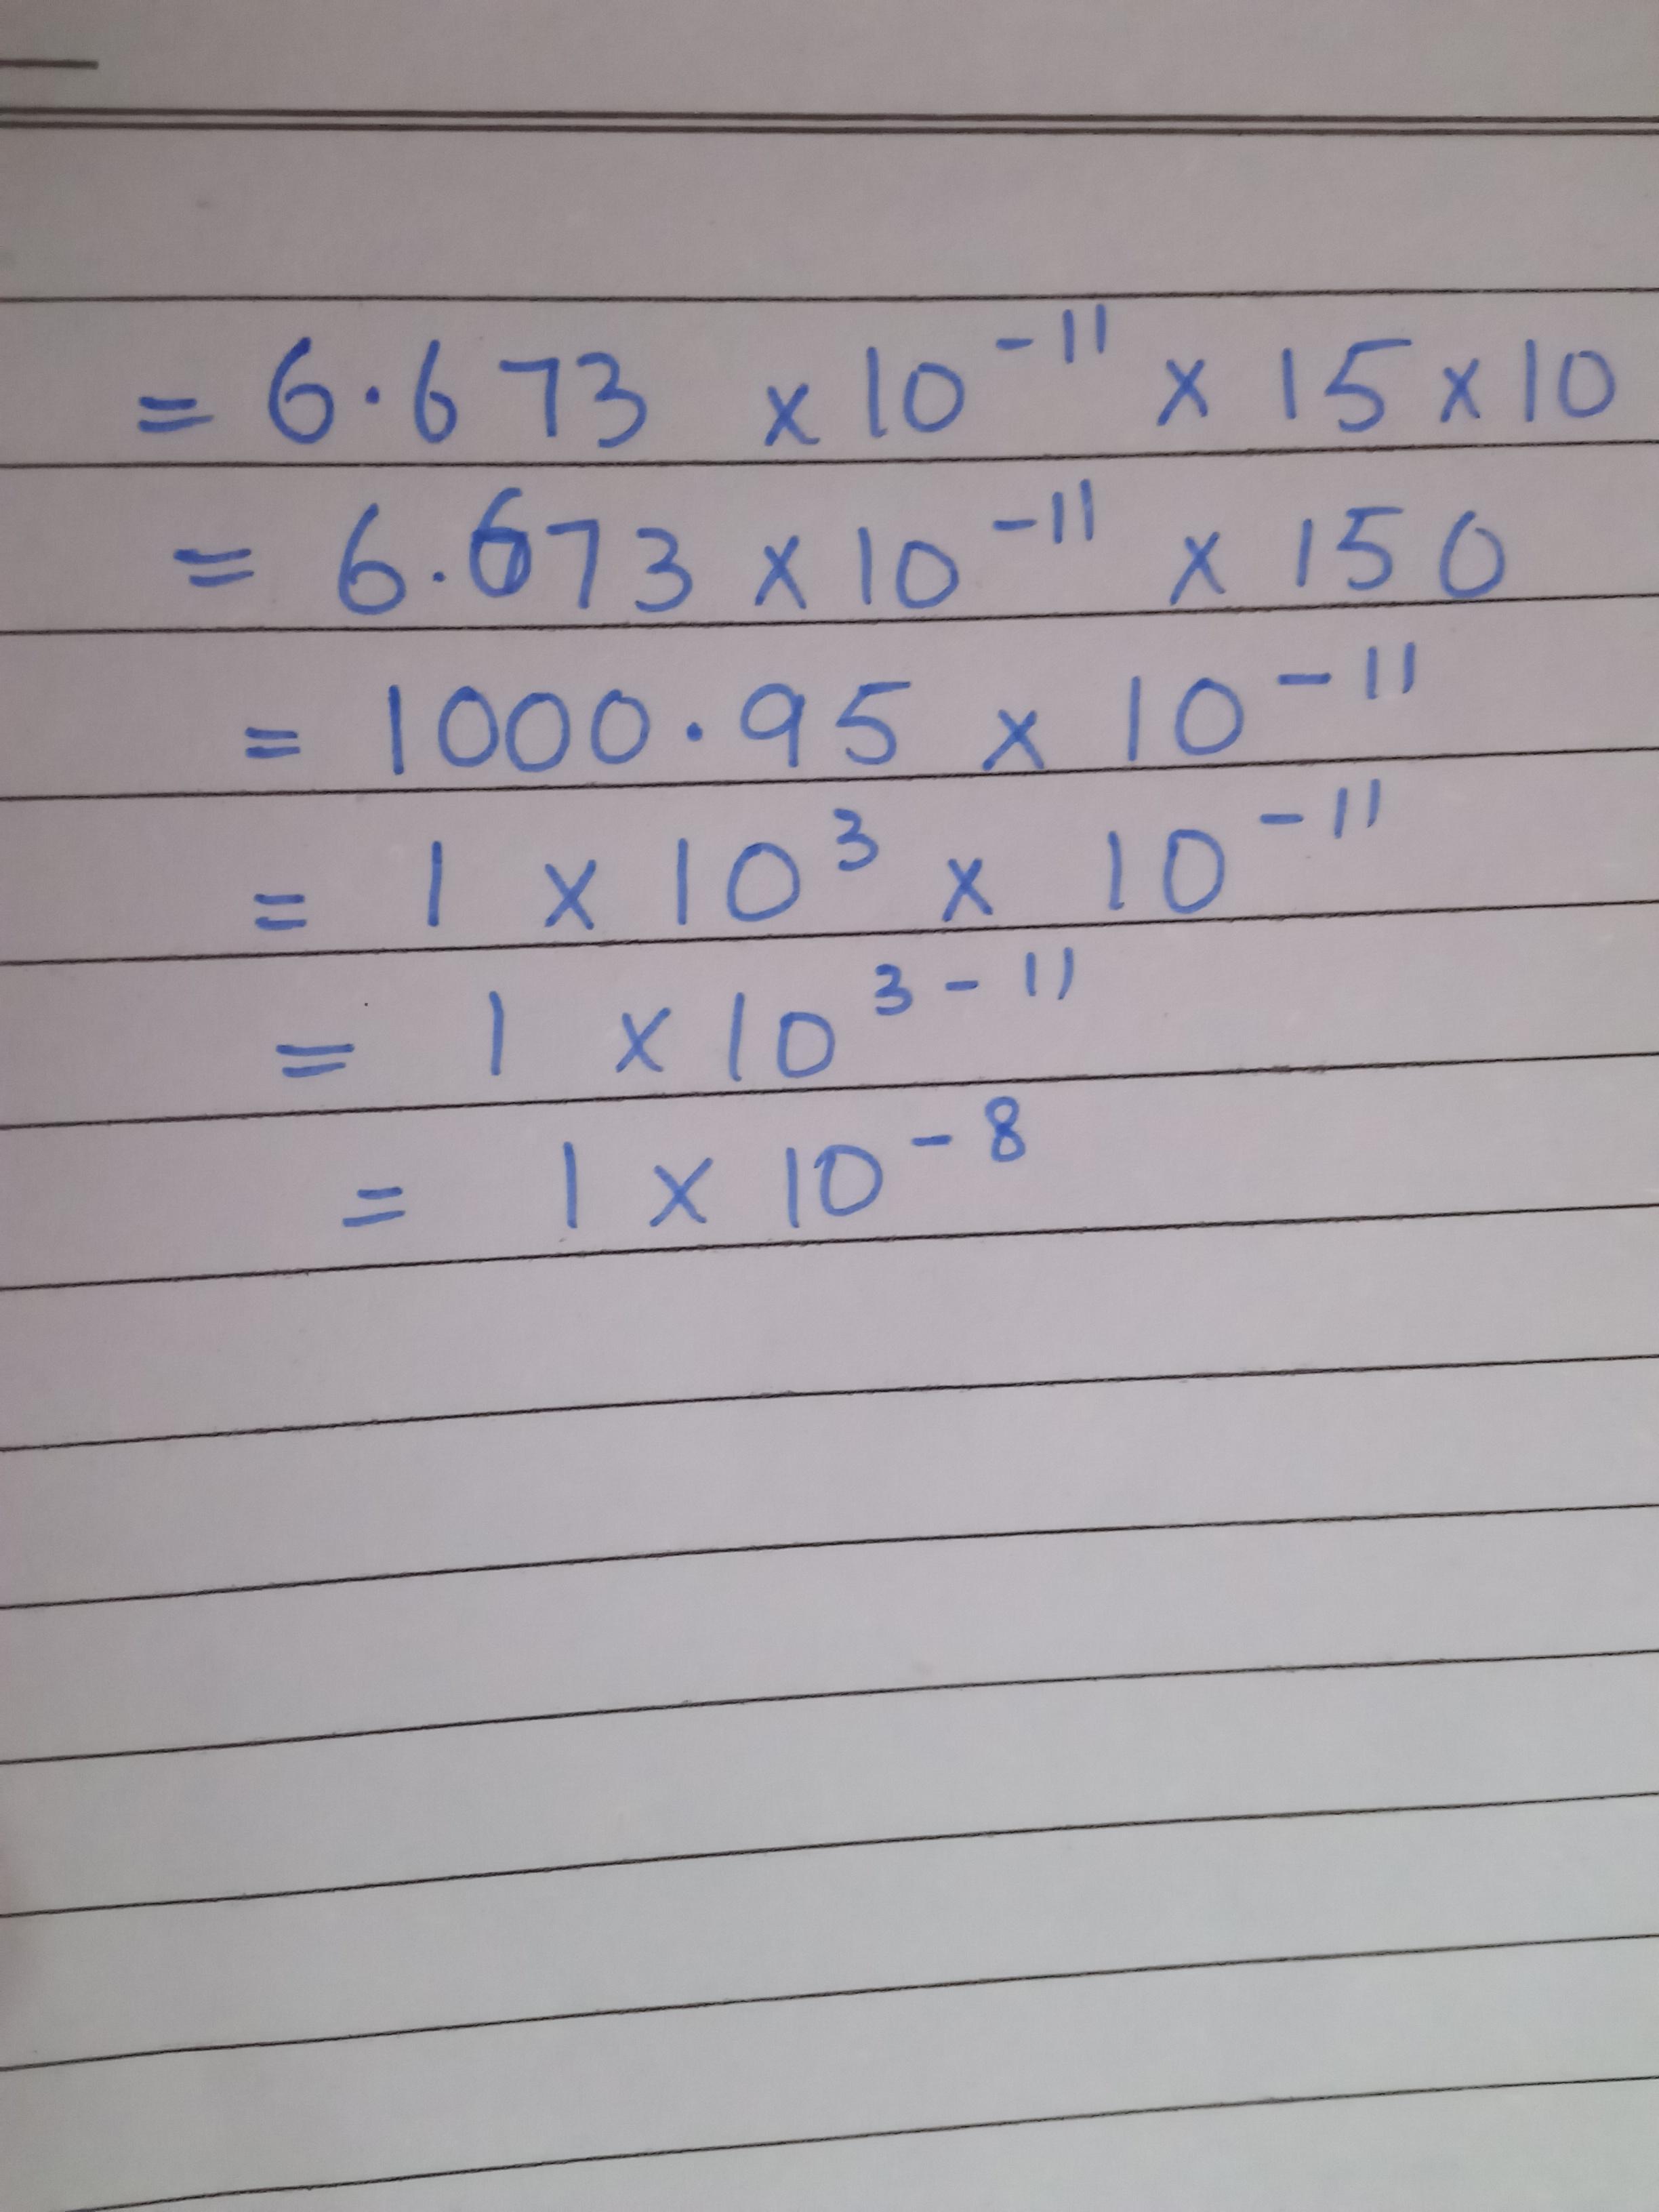 = 6.673 × 10⁻¹¹ × 15 × 10
= 6.673 × 10⁻¹¹ × 150
= 1000.95 × 10⁻¹¹
= 1 × 10³ × 10⁻¹¹
= 1 × 10³⁻¹¹
= 1 × 10⁻⁸